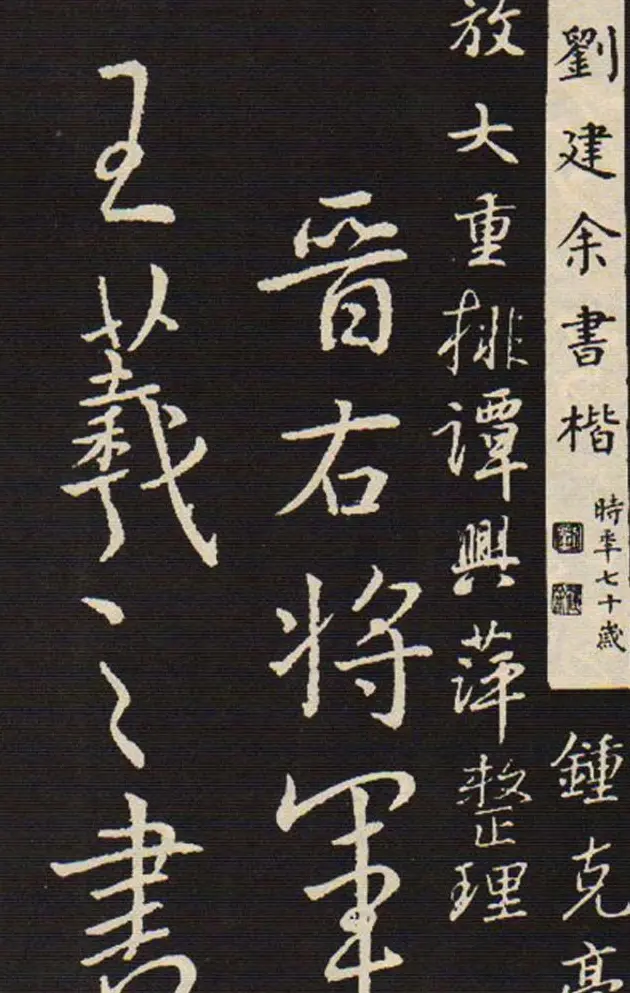 劉建余書楷
時年七十歲
鍾克
放大重排譚興萍整理
晋右将軍
王羲之書